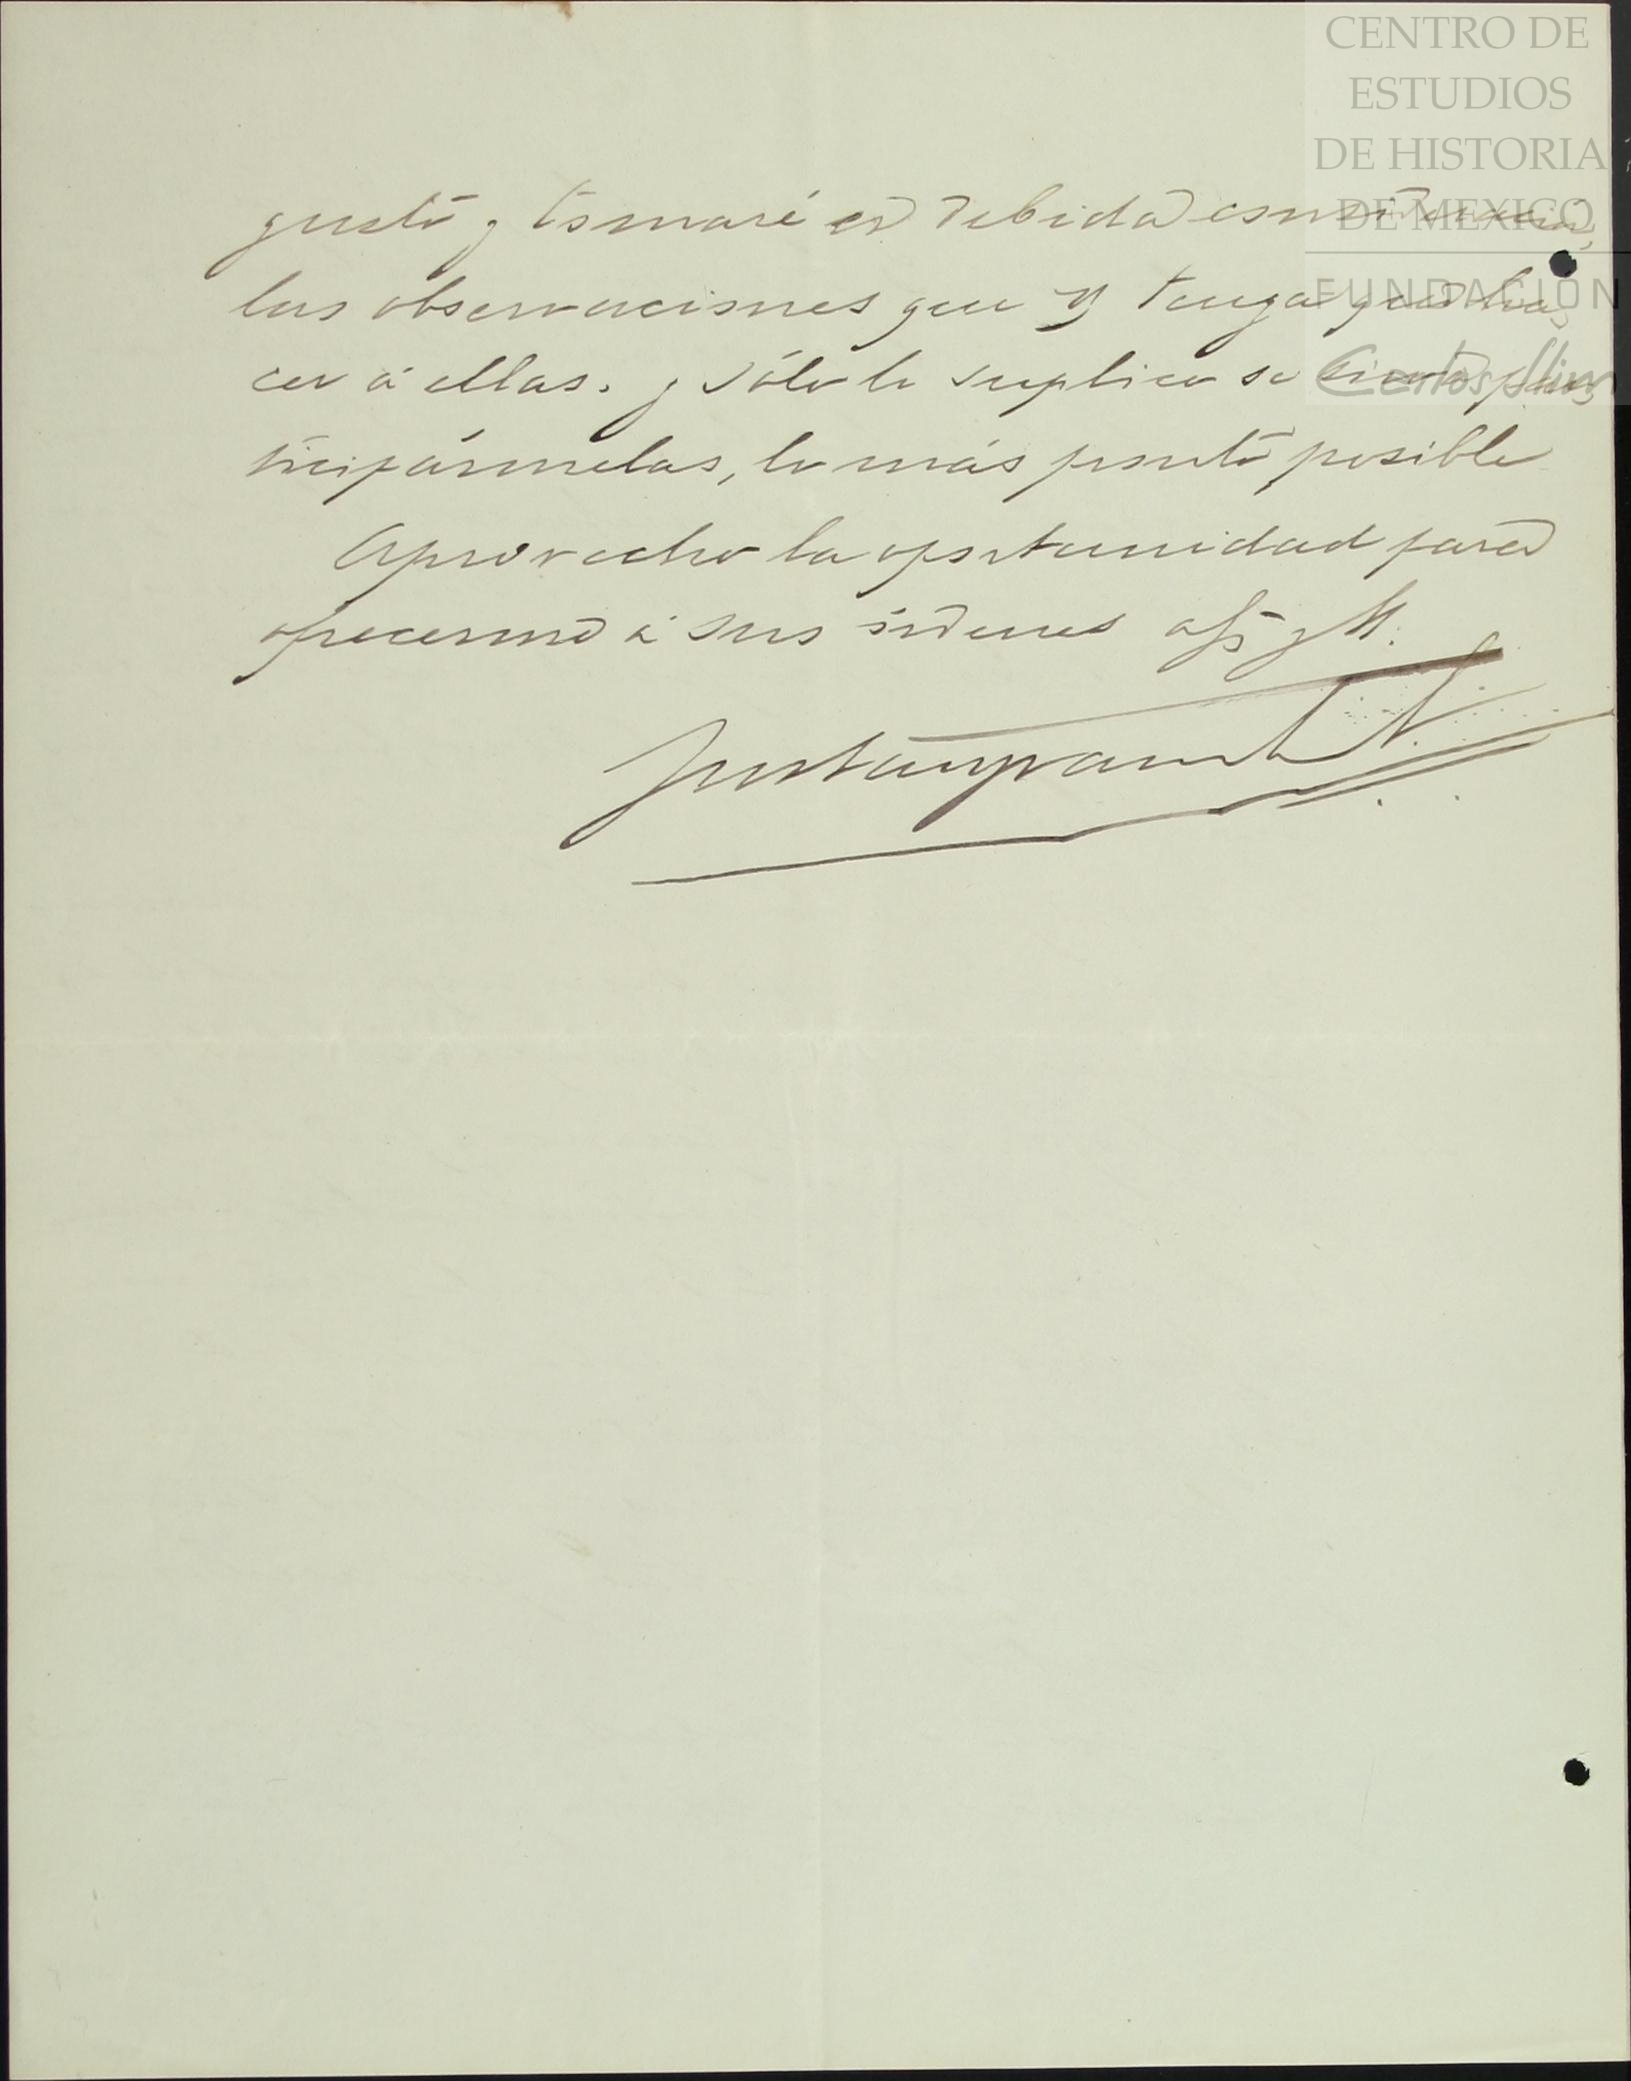 CENTRO DE
ESTUDIOS
DE HISTORIA
DE MEXICO
FUNDACIÓN
Carlos Slim
gusto y tomaré en debida consideración,
las observaciones que V tenga que ha-
cer á ellas. y sólo le suplico se sirva par-
ticipármelas, lo más pronto posible
Aprovecho la oportunidad para
ofrecerme á sus órdenes afo y